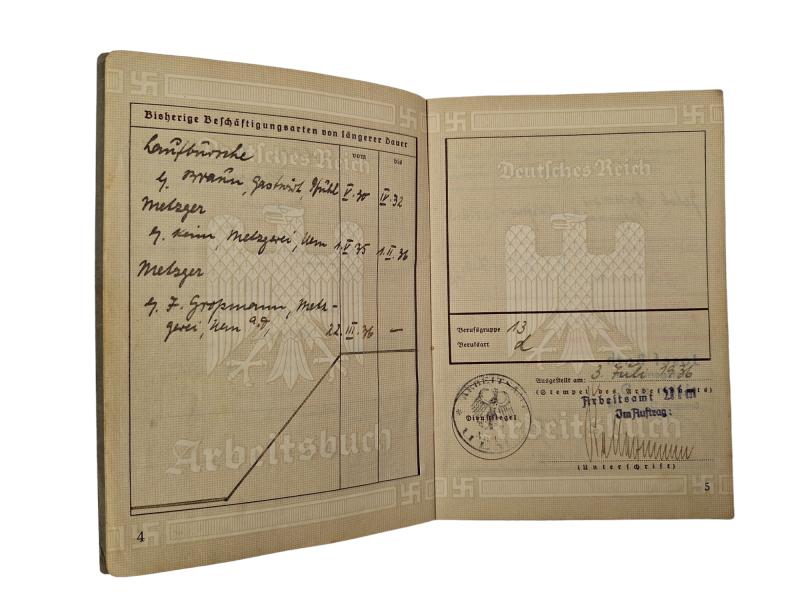 Bisherige Beschäftigungsarten von längerer Dauer
vom bis
Laufbursche
b/. Braun, Gastwirt, Pfuhl V. 30 IV. 32
Metzger
b/. Keim, Metzgerei, Ulm 1. V. 35 1. II. 36
Metzger
b/. J. Großmann, Metz-
gerei, Ulm a.D. 22. III. 36 —
Deutsches Reich
Arbeitsbuch
4
Deutsches Reich
Berufsgruppe 13
Berufsart d
Ausgestellt am: 3. Juli 1936
(Stempel des Arbeitsamts)
Arbeitsamt Ulm
Im Auftrag:
ARBEITSAMT
Dienstsiegel
ULM
Arbeitsbuch
(Unterschrift)
5